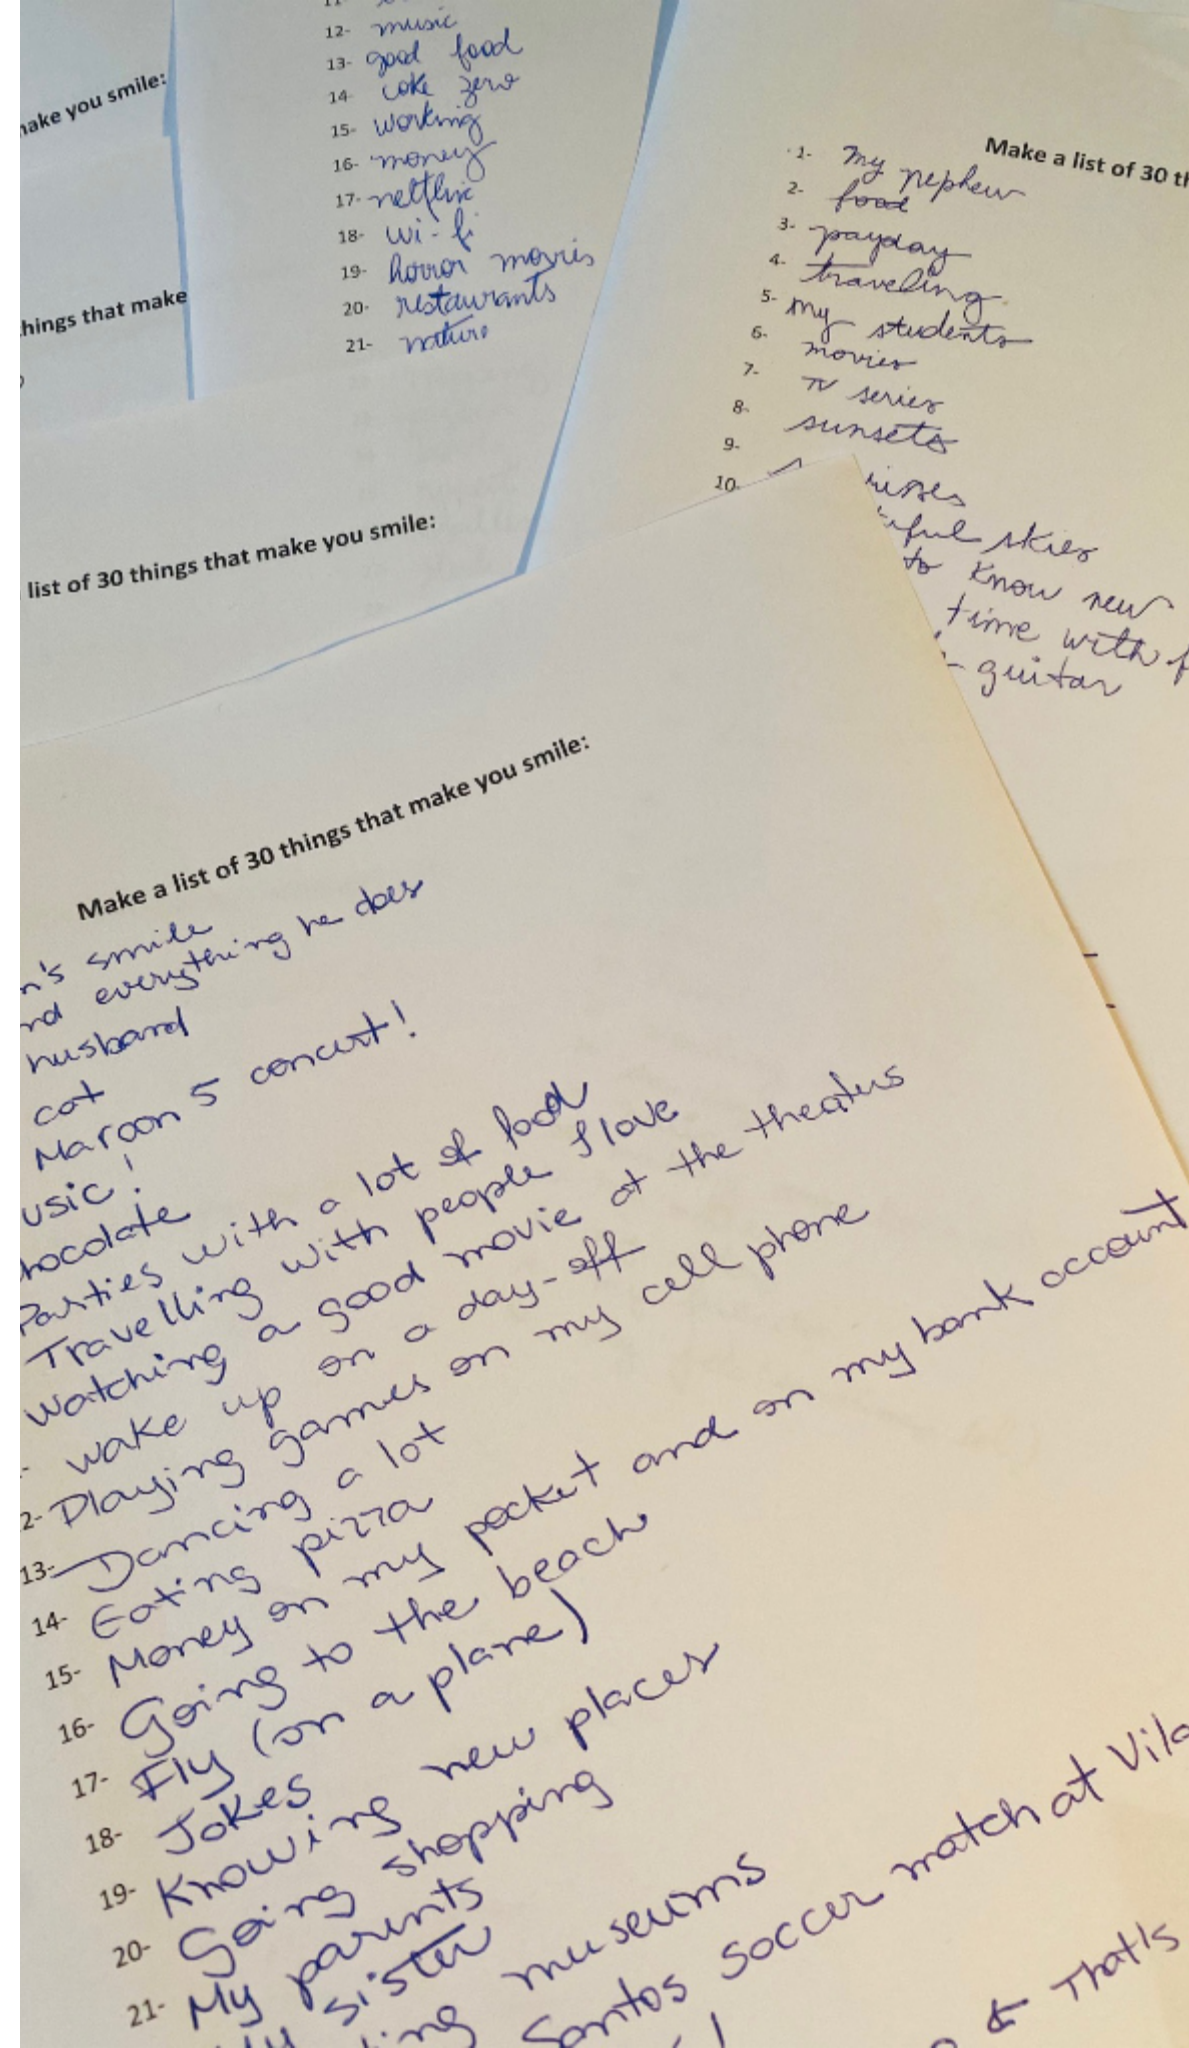 make you smile:
things that make
list of 30 things that make you smile:
12- music
13- good food
14- coke zero
15- working
16- money
17- netflix
18- wi-fi
19- horror movies
20- restaurants
21- nature
Make a list of 30 th
1- my nephew
2- food
3- payday
4- traveling
5- my students
6- movies
7- TV series
8- sunsets
9-
10-
skies
to know new
time with f
guitar
Make a list of 30 things that make you smile:
n's smile
nd everything he does
husband
cat
Maroon 5 concert!
usic!
hocolate
Parties with a lot of food
Travelling with people I love
Watching a good movie at the theaters
- wake up on a day-off
2- Playing games on my cell phone
13- Dancing a lot
14- Eating pizza
15- Money on my pocket and on my bank account
16- Going to the beach
17- Fly (on a plane)
18- Jokes
19- Knowing new places
20- Going shopping
21- My parents
sister
ting museums
Santos soccer match at Vila
& That's